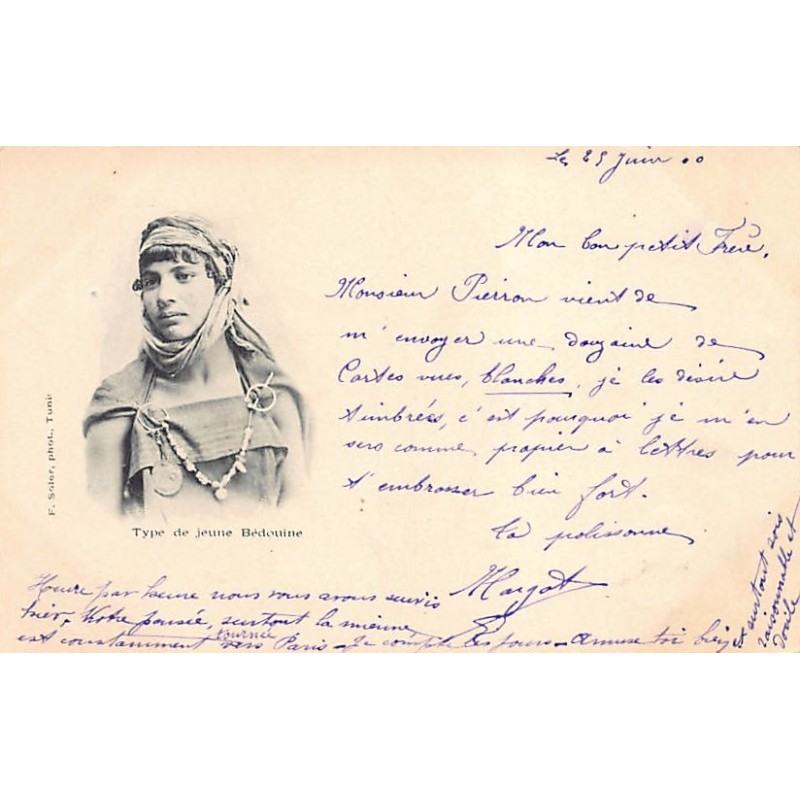 Le 25 Juin 00
Mon bon petit Frère,
Monsieur Pierron vient de
m'envoyer une douzaine de
Cartes vues, blanches, je les désire
timbrées, c'est pourquoi je m'en
sers comme papier à lettres pour
t'embrasser bien fort.
ta polissonne
Margot
F. Soler, phot., Tunis
Type de jeune Bédouine
Heure par heure nous vous avons suivis
hier, Notre pensée, surtout la mienne
est constamment tournée vers Paris - Je compte les jours - amuse toi bien
et surtout sois
raisonnable et
docile